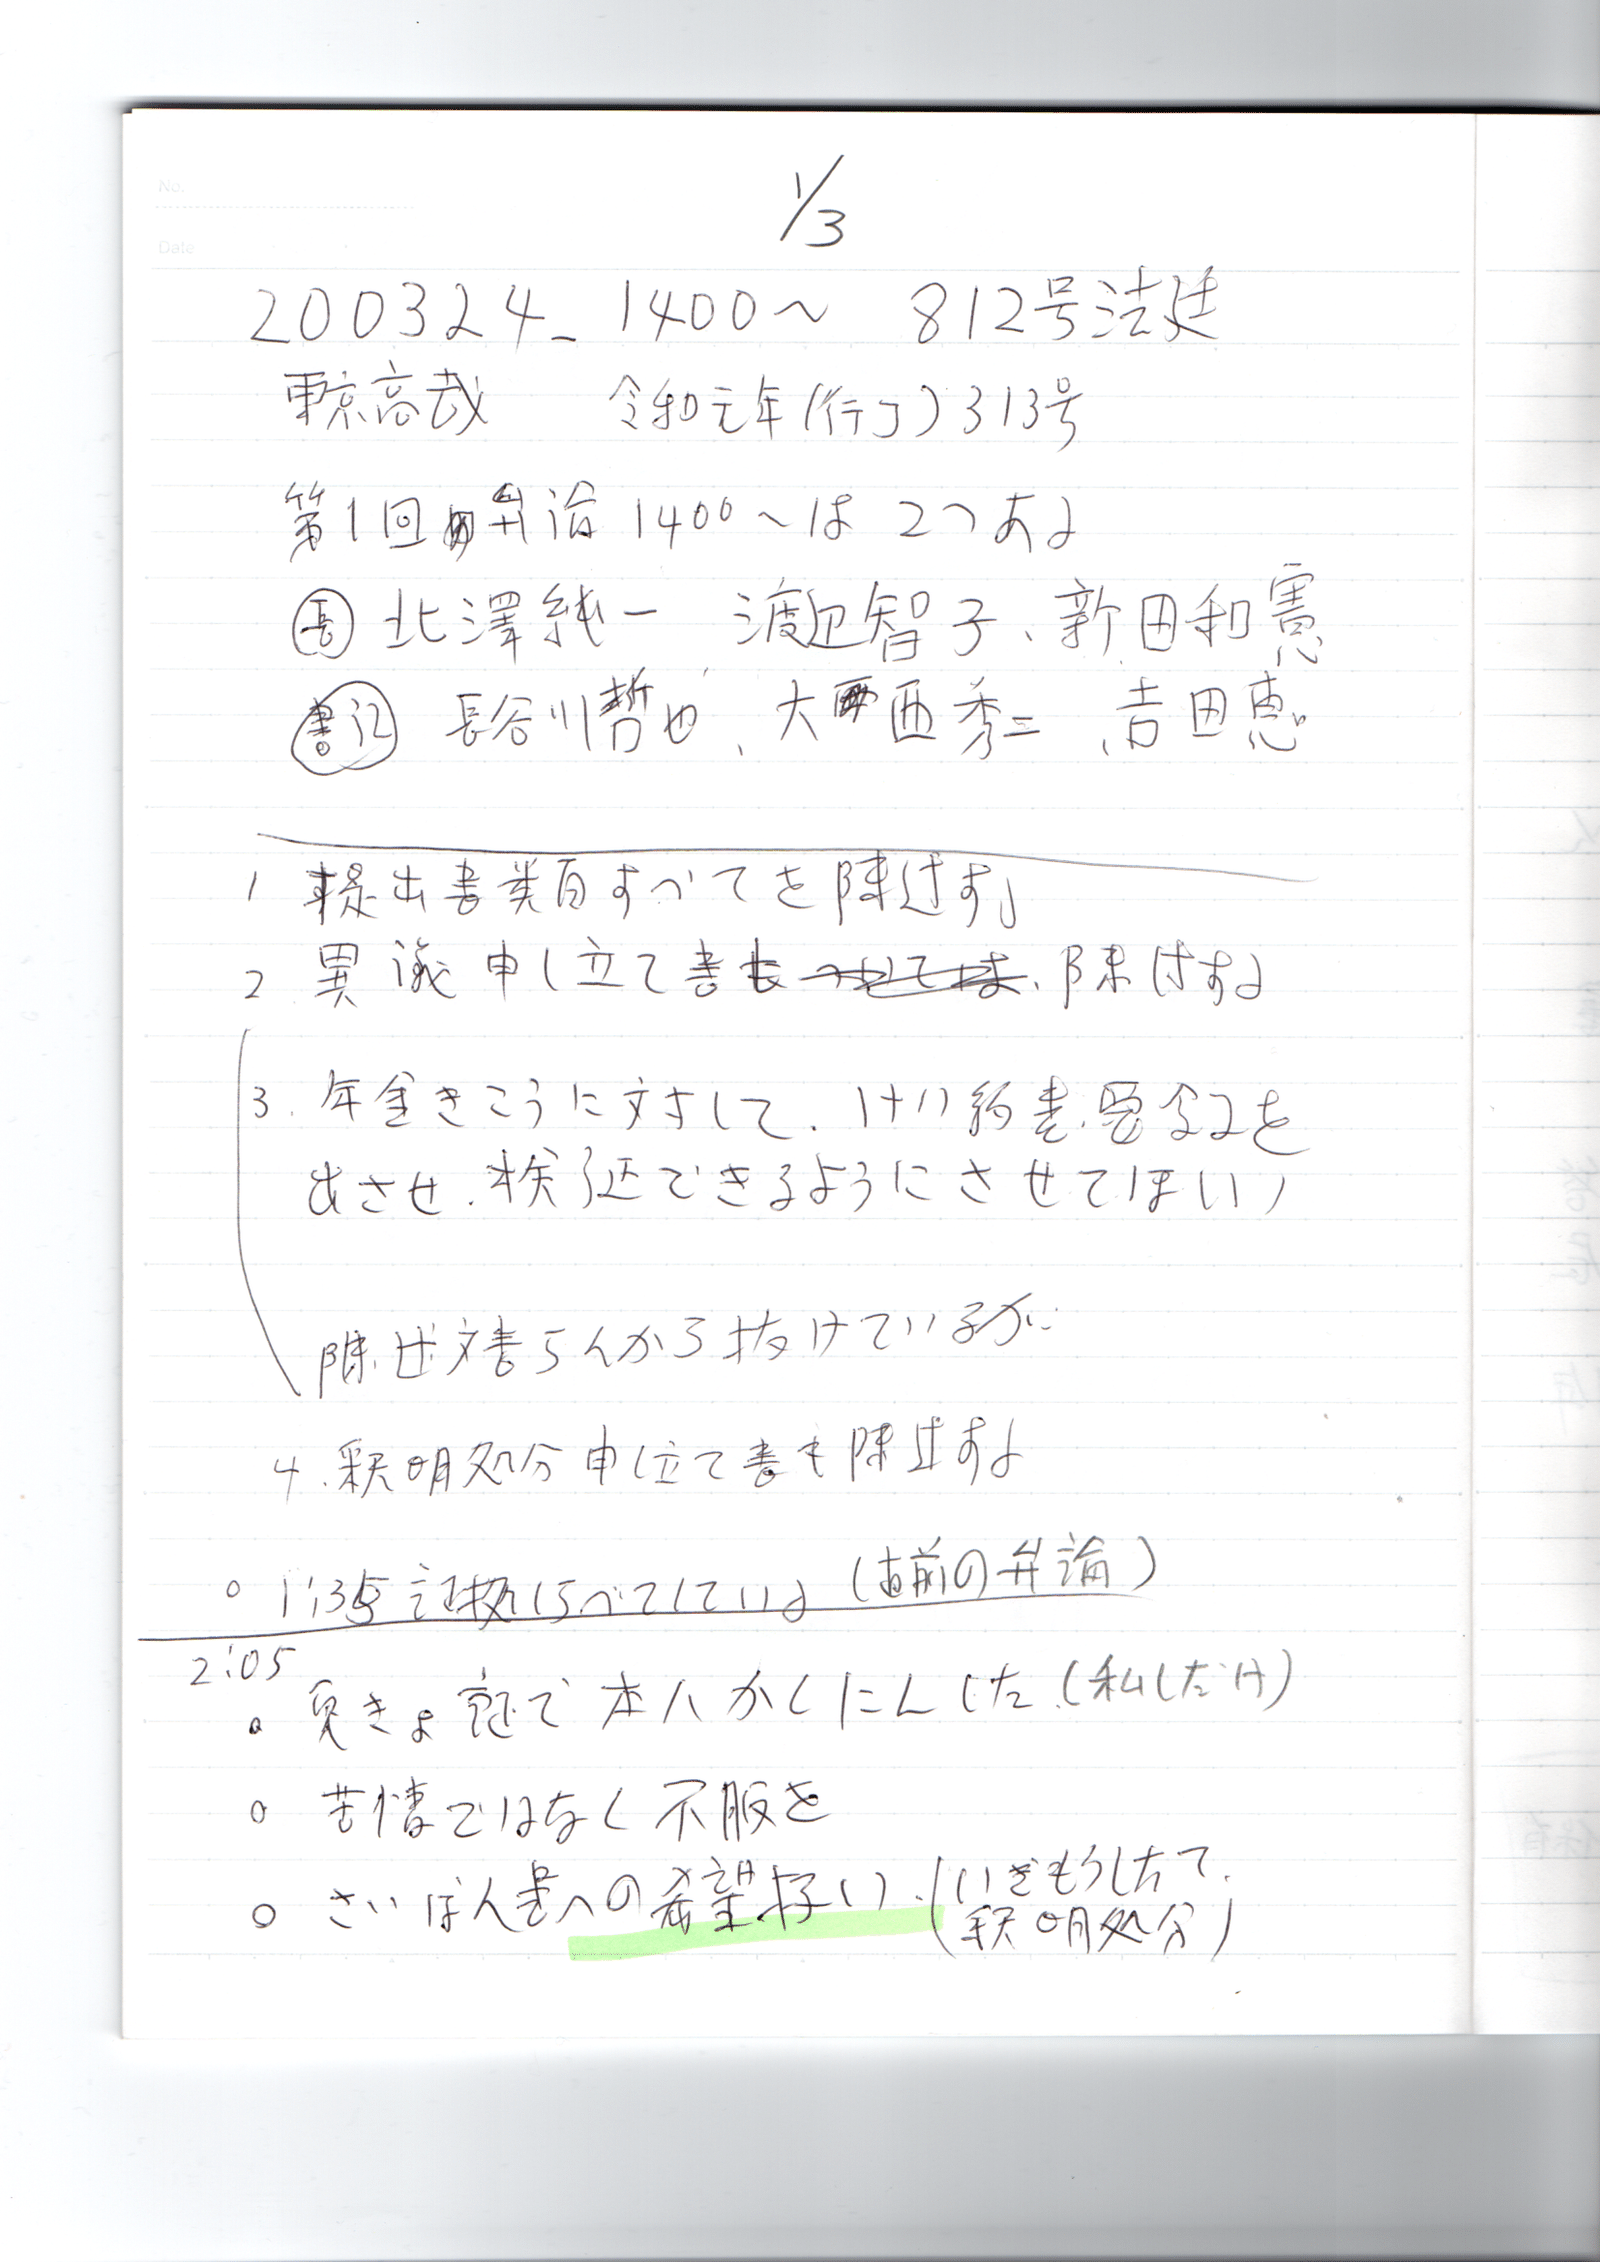 No.
Date
1/3
200324_1400〜 812号法廷
東京高裁 令和元年(行コ)313号
第1回弁論 1400〜は 2つある
長 北澤純一 渡辺智子、新田和憲
書記 長谷川哲也、大西秀二、吉田恵
1 提出書類すべてを陳述する
2 異議申し立て書も、陳述する
3. 年金きこうに対して、けい約書、
出させ、検証できるようにさせてほしい
陳述文書らんから抜けているが
4. 釈明処分申し立て書も陳述する
○ 1:35 証拠しらべてしている (直前の弁論)
2:05
○ 免きょ証で本人かくにんした。(私しだけ)
○ 苦情ではなく不服を
○ さいばん書への希望 (いぎもうしたて、
釈明処分)